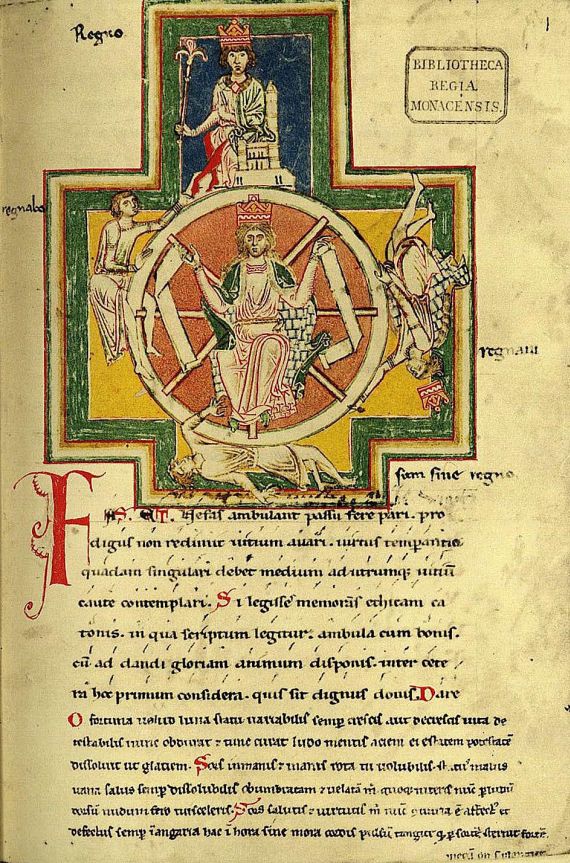 Regno
BIBLIOTHECA
REGIA
MONACENSIS.
regnabo
regnaui
sum sine regno
FAS. ET. Nefas ambulant passu fere pari. pro
digus non redimit uitium auari. uirtus temperantia
quadam singulari debet medium ad utrumque uitium
caute contemplari. Si legisse memoras ethicam ca
tonis. in qua scriptum legitur. ambula cum bonis.
cum ad dandi gloriam animum disponis. inter cete
ra hoc primum considera. quis sit dignus donis. Dare
O fortuna uelud luna statu uariabilis semper crescis. aut decrescis uita de
testabilis nunc obdurat et tunc curat ludo mentis aciem egestatem potestatem
dissoluit ut glaciem. Sors inmanis et inanis rota tu uolubilis. status malus
uana salus semper dissolubilis obumbratam et uelatam michi quoque niteris nunc per ludum
dorsum nudum fero tui sceleris. Sors salutis et uirtutis michi nunc contraria est affectus et
defectus semper in angaria hac in hora sine mora